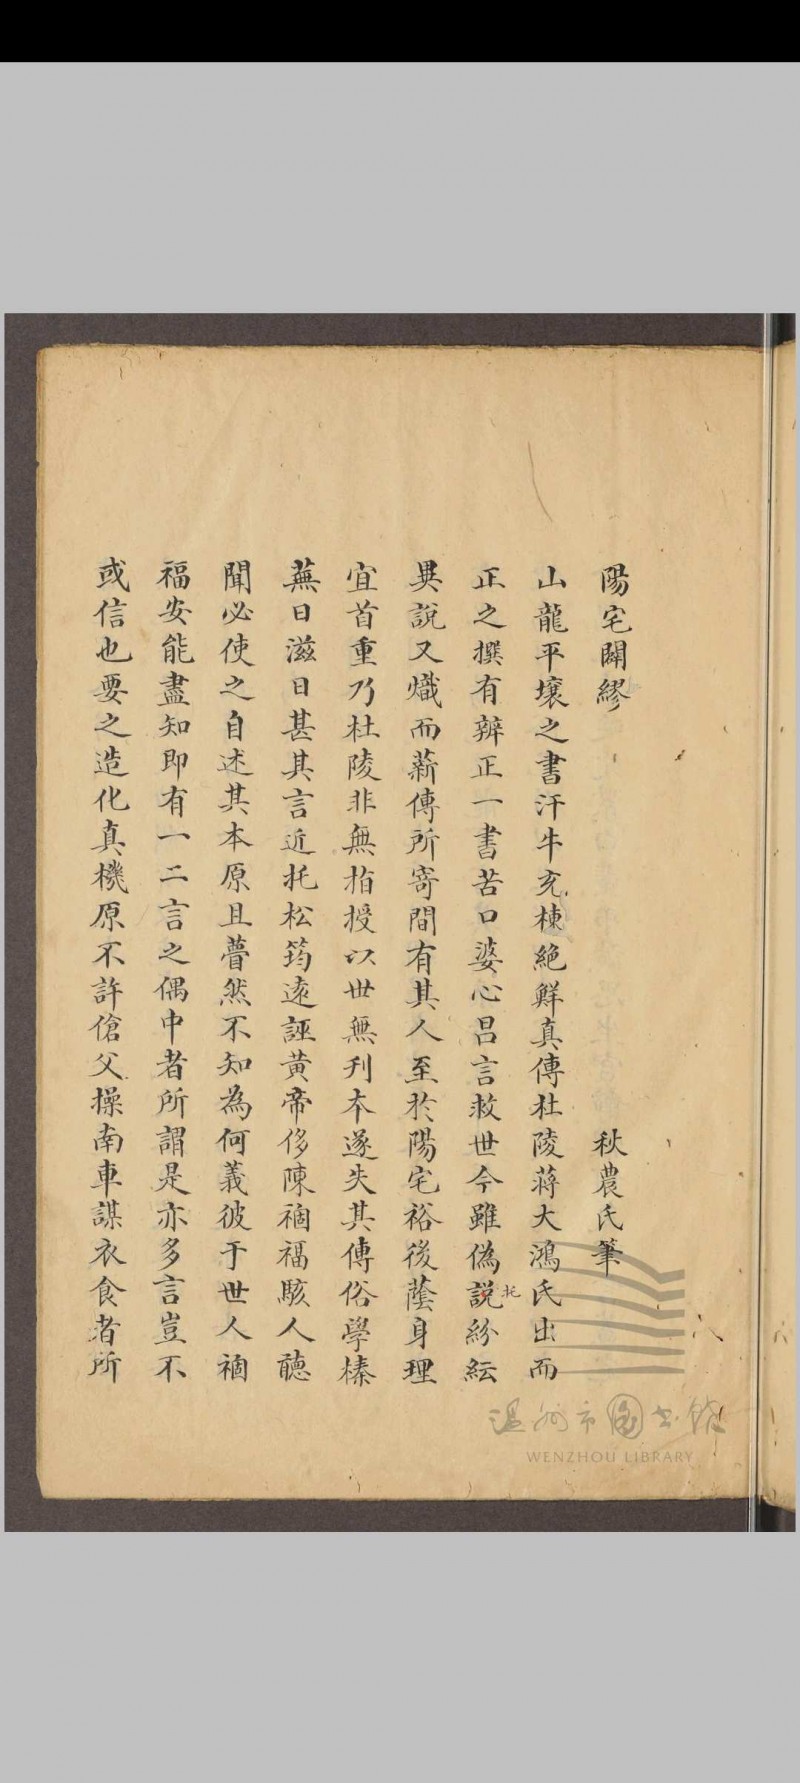 陽宅闢繆　秋農氏筆
山龍平壤之書汗牛充棟絕鮮真傳杜陵蔣大鴻氏出而
正之撰有辨正一書苦口婆心昌言救世今雖偽說紛紜
托
異說又熾而薪傳所寄間有其人至於陽宅裕後蔭身理
宜首重乃杜陵非無指授以世無刊本遂失其傳俗學榛
蕪日滋日甚其言近托松筠遠誣黃帝侈陳禍福駭人聽
聞必使之自述其本原且瞢然不知為何義彼于世人禍
福安能盡知即有一二言之偶中者所謂是亦多言豈不
或信也要之造化真機原不許傖父操南車謀衣食者所
溫州市圖書館
WENZHOU LIBRARY